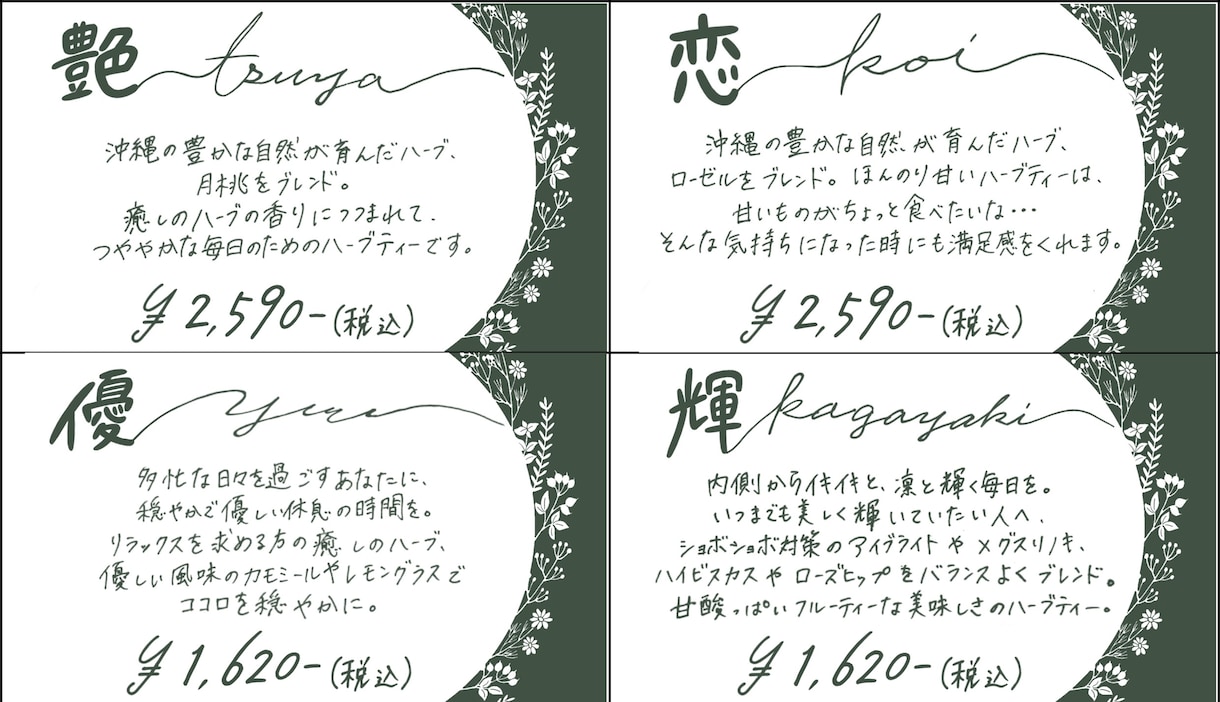 艶 tsuya
沖縄の豊かな自然が育んだハーブ、
月桃をブレンド。
癒しのハーブの香りにつつまれて、
つややかな毎日のためのハーブティーです。
¥2,590-(税込)
恋 koi
沖縄の豊かな自然が育んだハーブ、
ローゼルをブレンド。ほんのり甘いハーブティーは、
甘いものがちょっと食べたいな・・・
そんな気持ちになった時にも満足感をくれます。
¥2,590-(税込)
優 yuu
多忙な日々を過ごすあなたに、
穏やかで優しい休息の時間を。
リラックスを求める方の癒しのハーブ、
優しい風味のカモミールやレモングラスで
ココロを穏やかに。
¥1,620-(税込)
輝 kagayaki
内側からイキイキと、凛と輝く毎日を。
いつまでも美しく輝いていたい人へ、
ショボショボ対策のアイブライトやメグスリノキ、
ハイビスカスやローズヒップをバランスよくブレンド。
甘酸っぱいフルーティーな美味しさのハーブティー。
¥1,620-(税込)